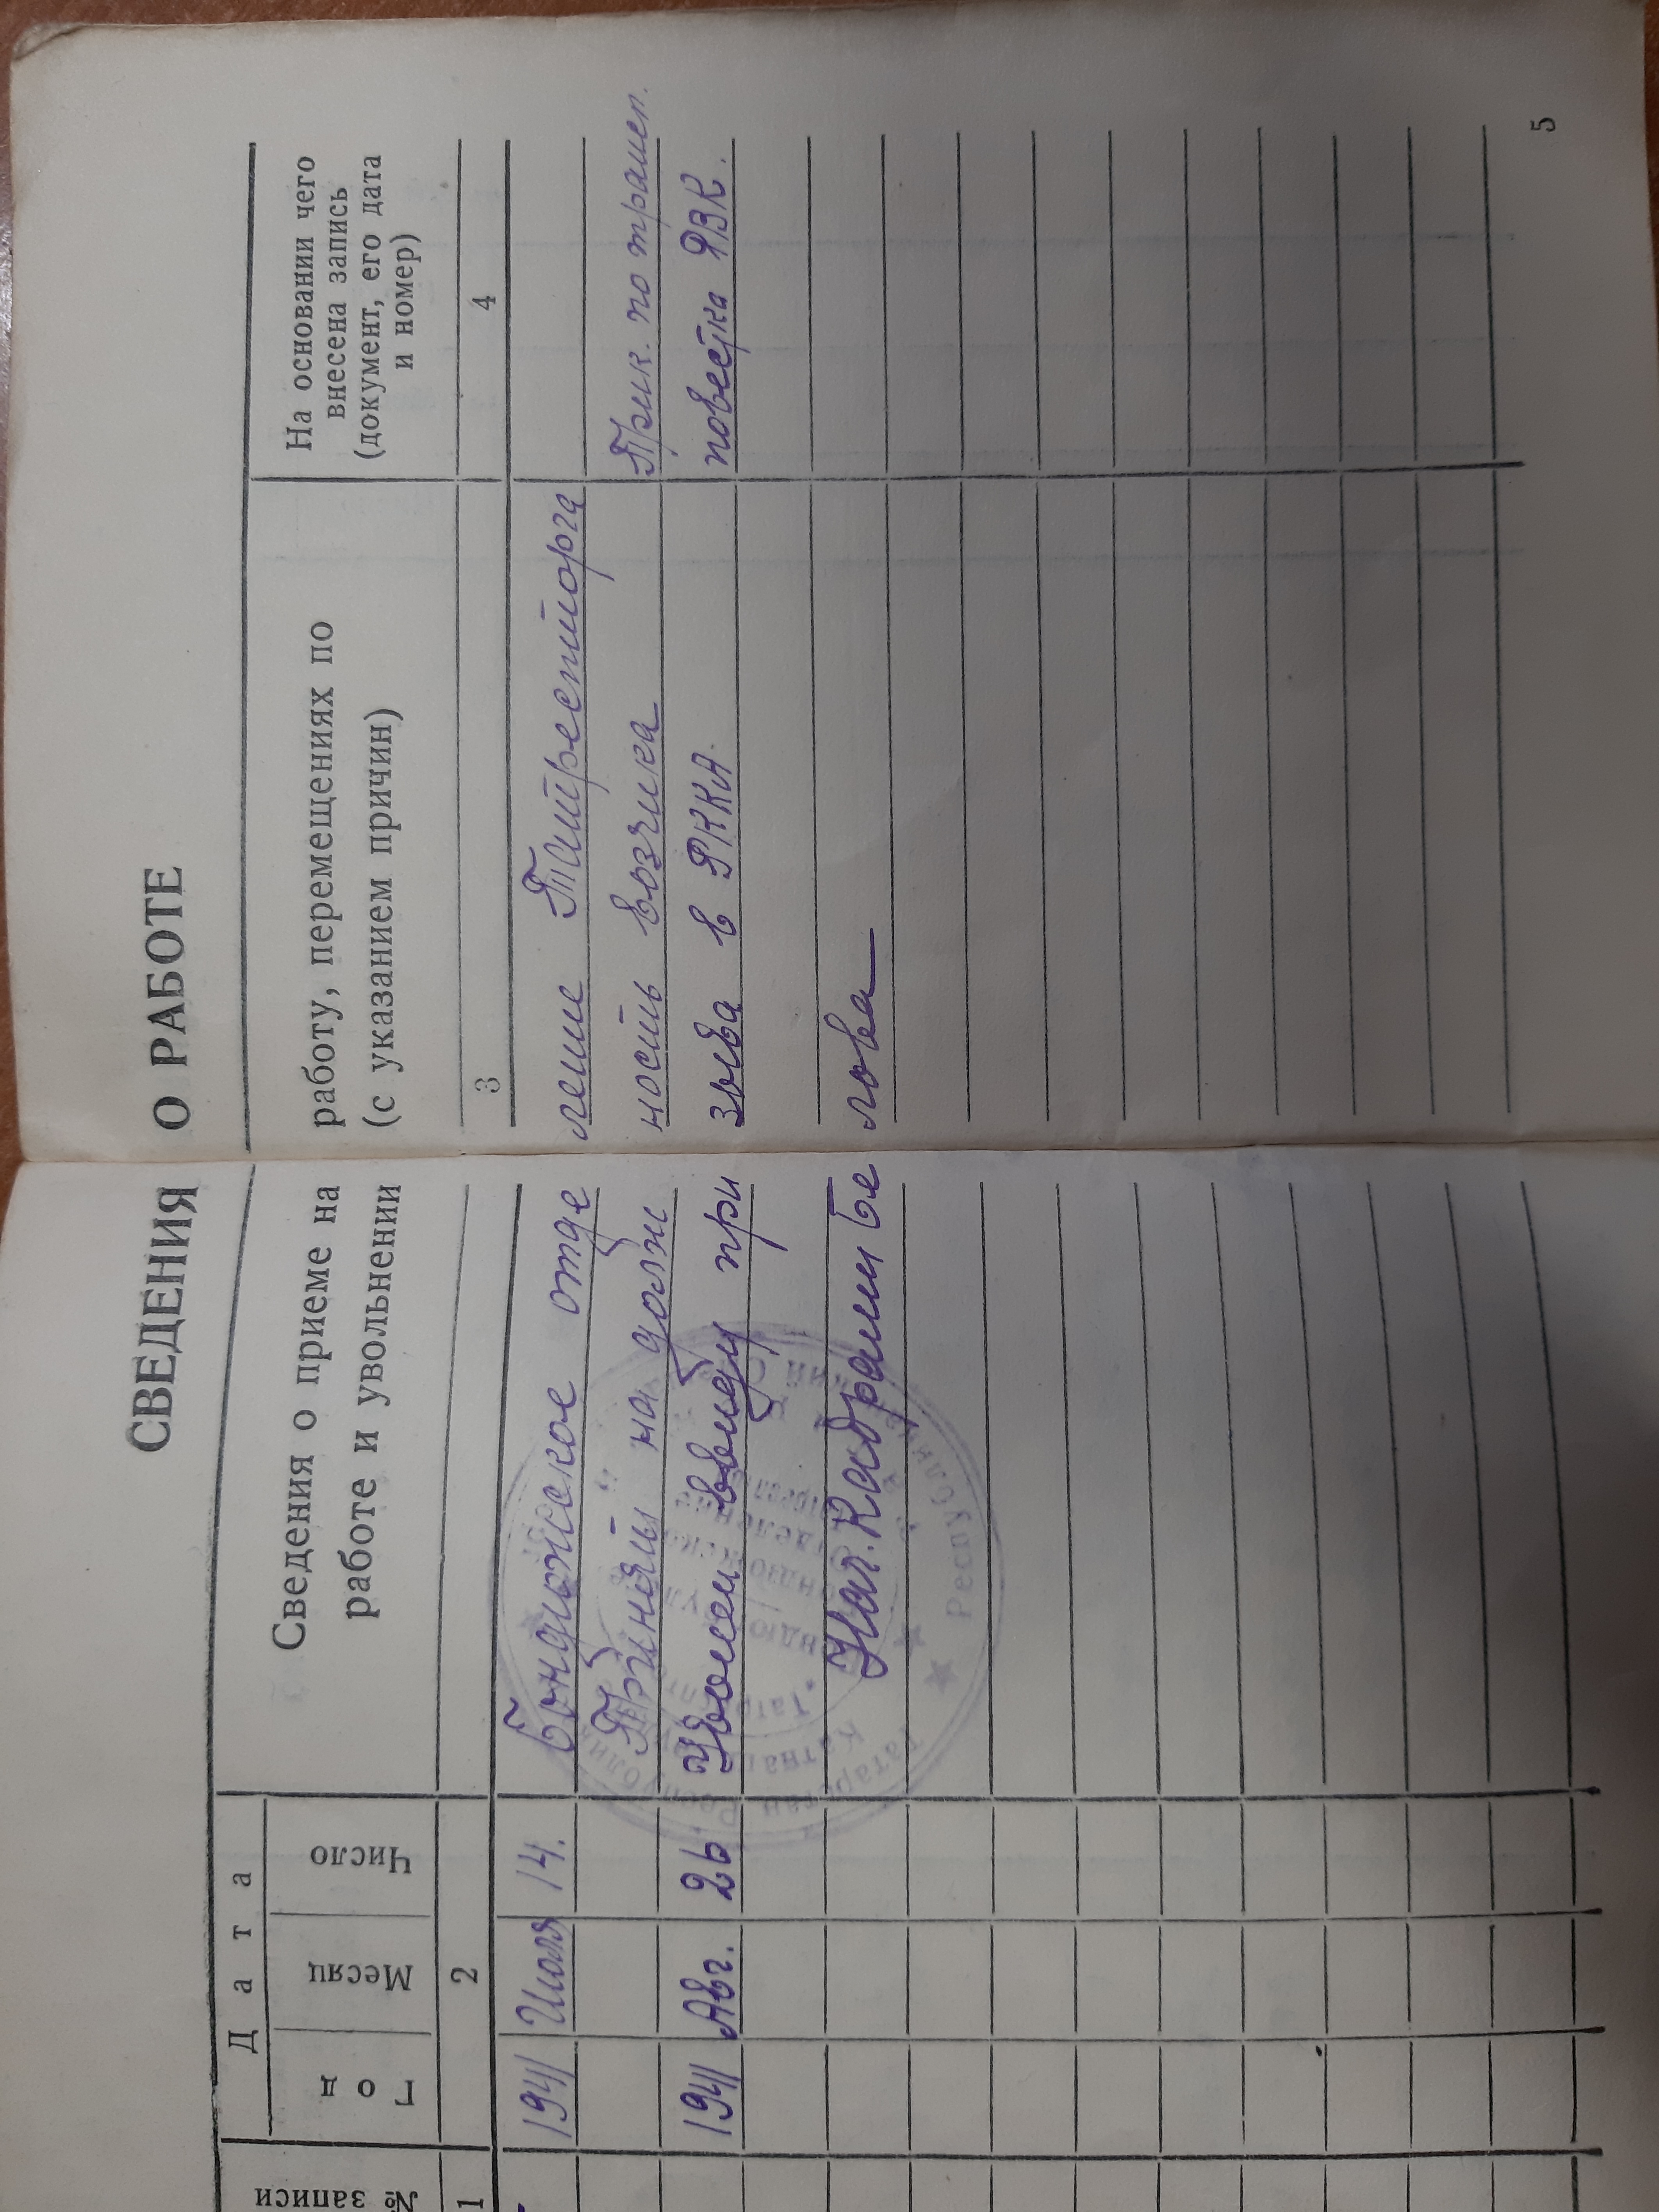 СВЕДЕНИЯ О РАБОТЕ
№ записи
Дата
Год
Месяц
Число
Сведения о приеме на работу, перемещениях по
работе и увольнении (с указанием причин)
На основании чего
внесена запись
(документ, его дата
и номер)
1 2 3 4
1941 Июля 14. Бондюжское отде ление Татрестторга
Принят на долж ность возчика Прик. по
1941 Авг. 26 Уволен ввиду при зыва в РККА. повестка РВК.
Нач. Кадрами Бе лова
Республика
5